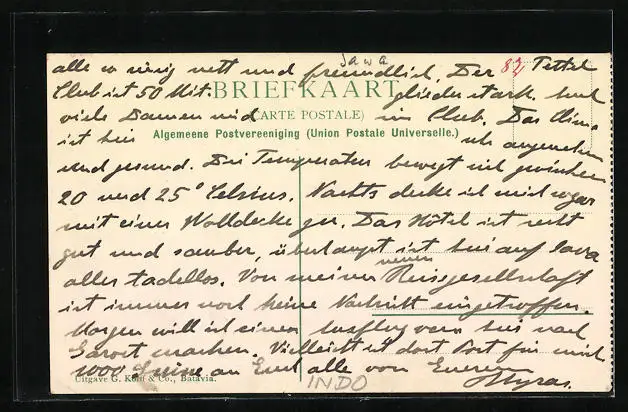 Jawa
82
alle so nett und freundlich. Der Tettel
Club ist 50 Mit-gliieder stark. Auch
BRIEFKAART
viele Damen sind im Club. Das Klima
(CARTE POSTALE)
ist hier sehr angenehm
Algemeene Postvereeniging (Union Postale Universelle.)
und gesund. Die Temperatur bewegt sich zwischen
20 und 25° Celsius. Nachts decke ich mich sogar
mit einer Wolldecke zu. Das Hôtel ist recht
gut und sauber, überhaupt ist hier auf Java
alles tadellos. Von meiner neuen Reisegesellschaft
ist immer noch keine Nachricht eingetroffen.
Morgen will ich einen Ausflug von hier nach
Garoet machen. Vielleicht ist dort Post für mich
1000 Grüsse an Euch alle von Eurem
Uitgave G. Kolff & Co., Batavia.
INDO